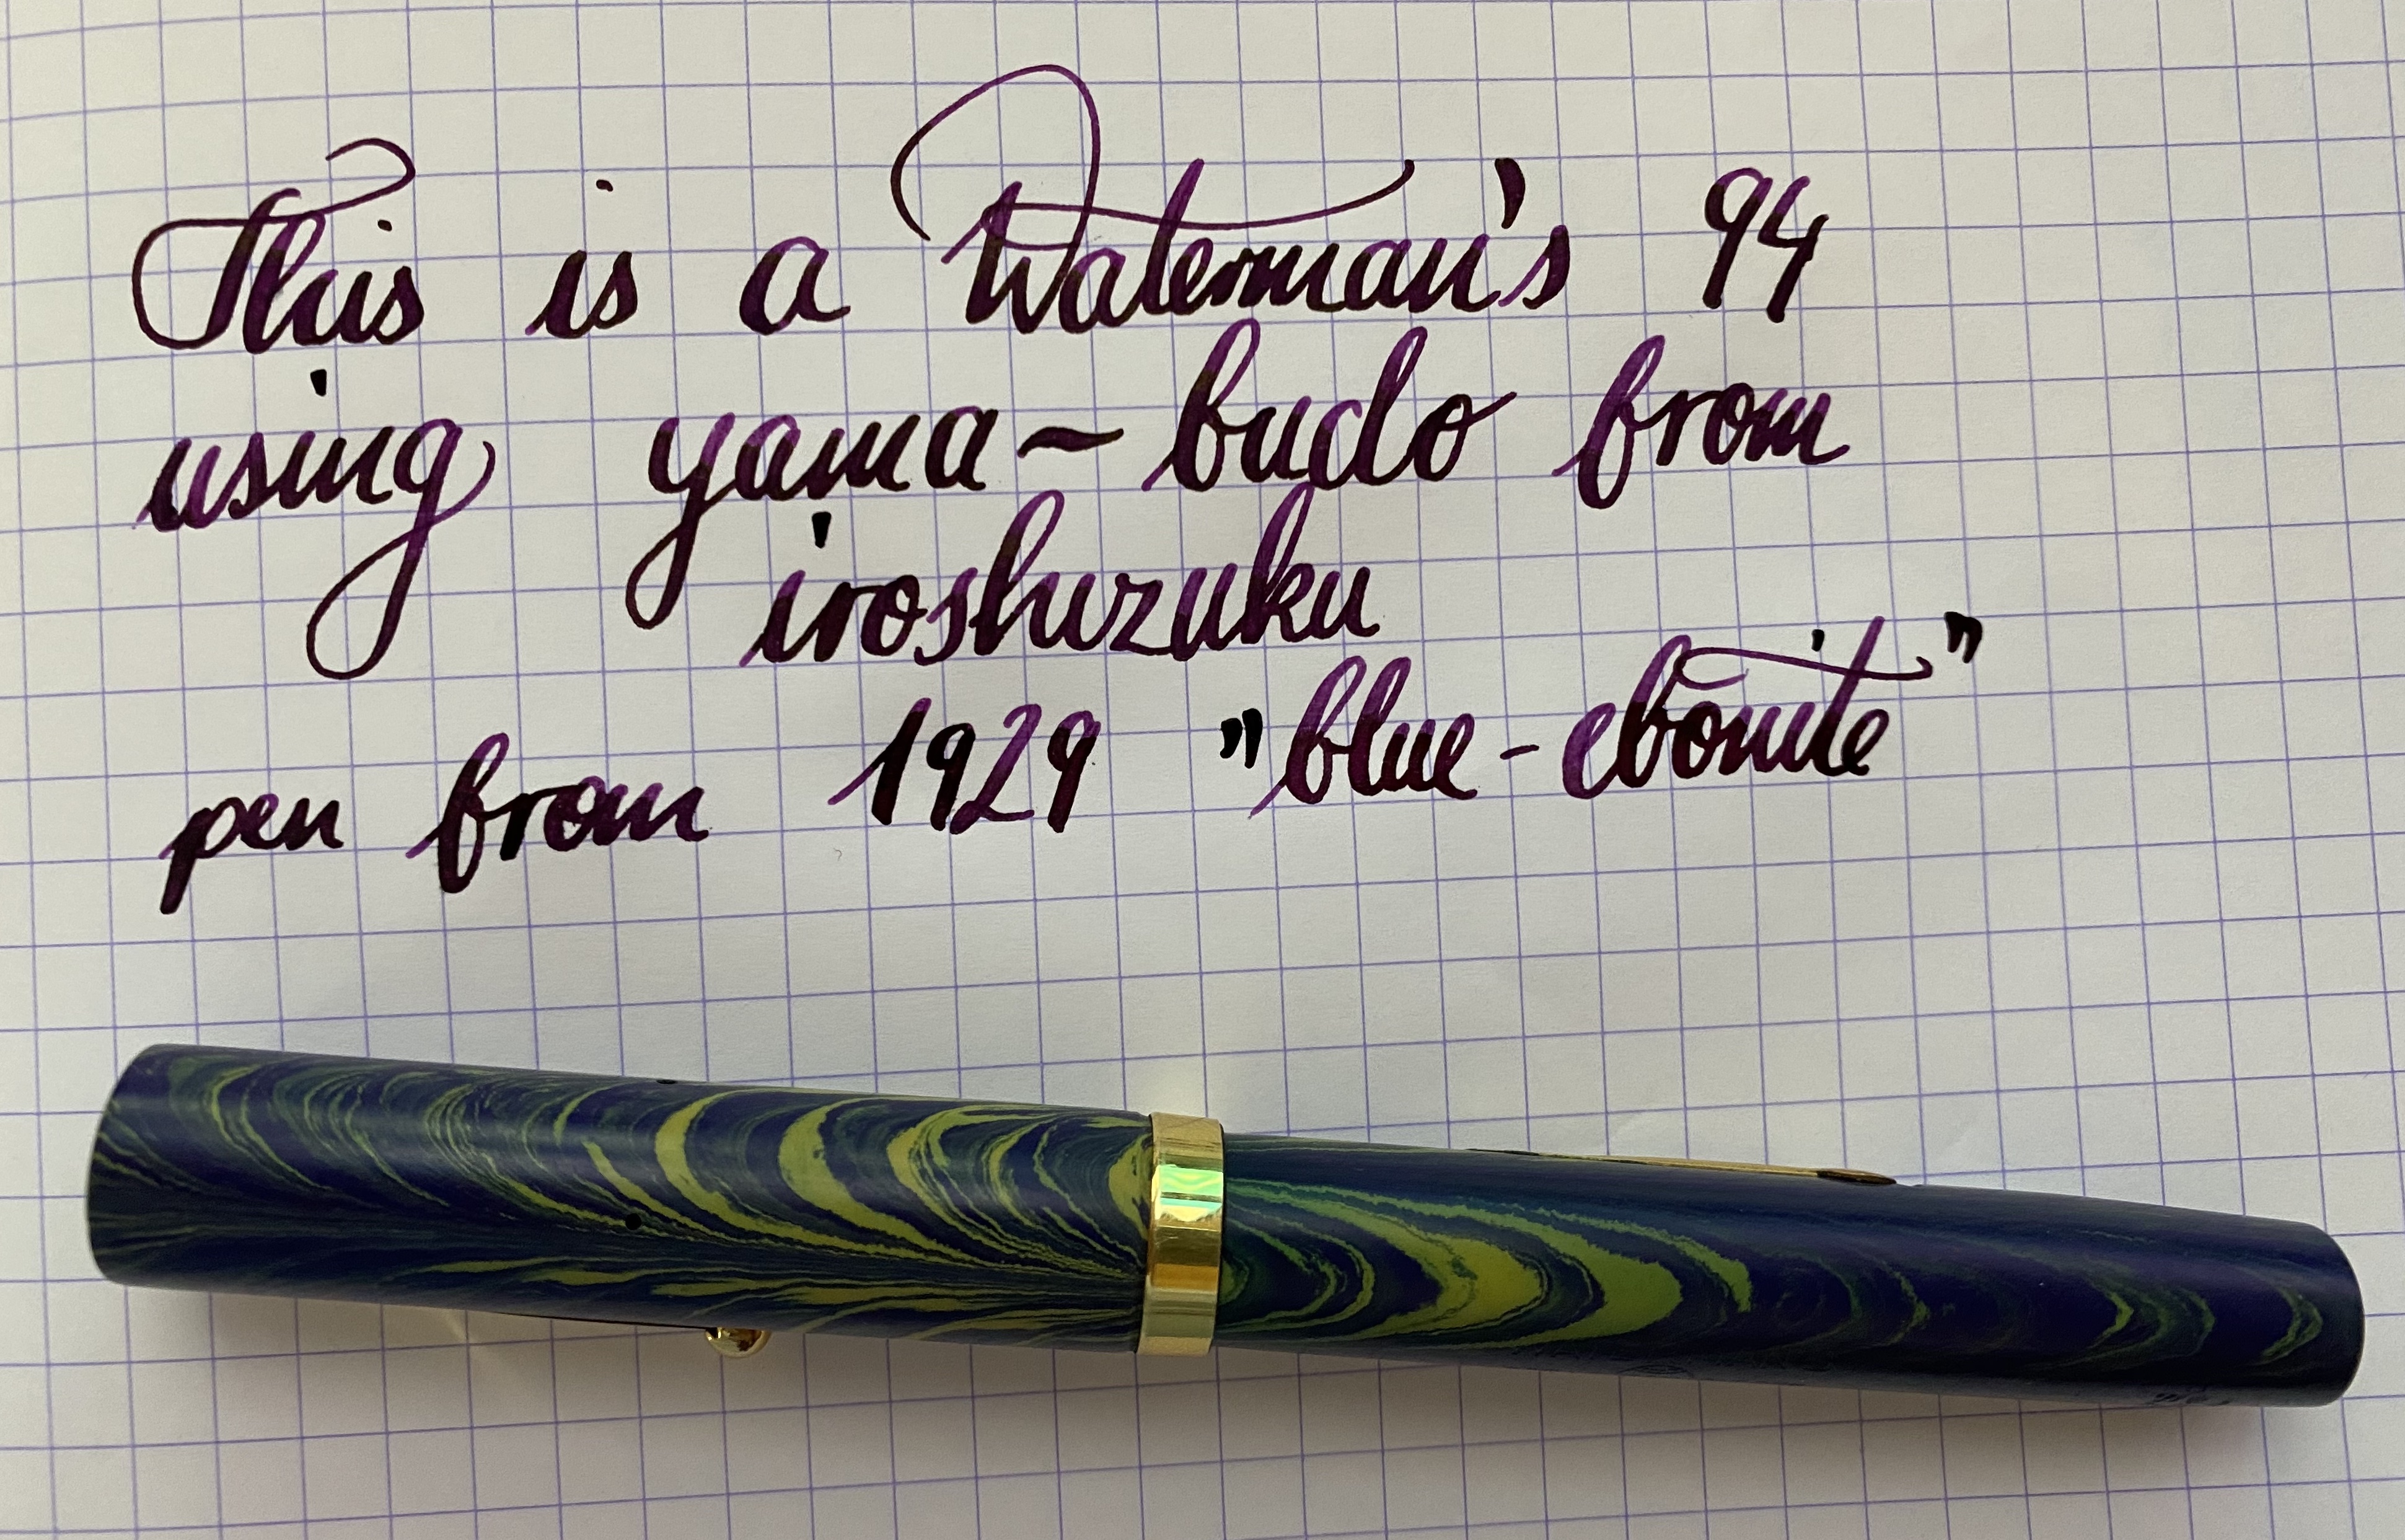 This is a Waterman's 94
using yama~budo from
iroshizuku
pen from 1929 "blue-ebonite"